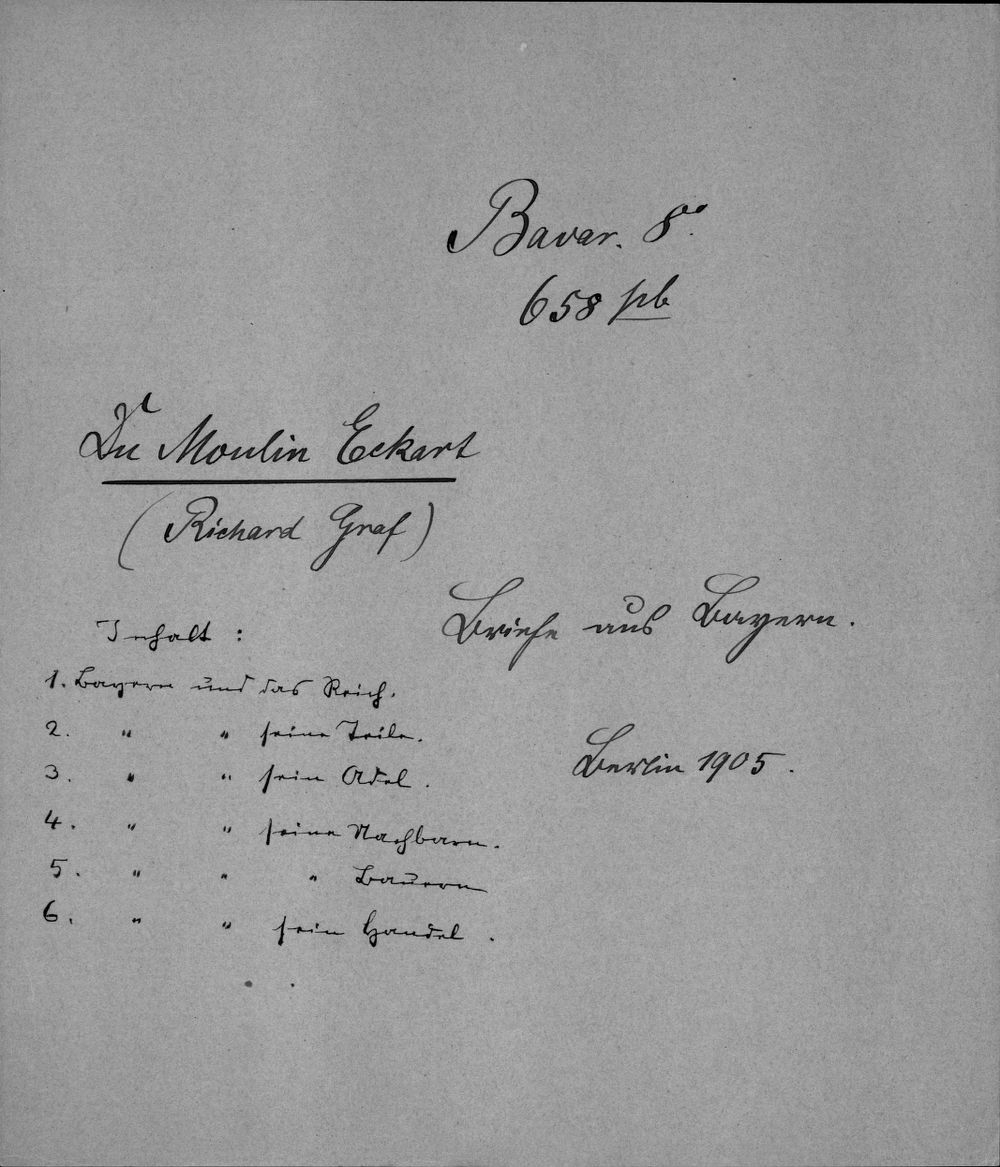 Bavar. 8°.
658 pb
Du Moulin Eckart
(Richard Graf)
Briefe aus Bayern.
Inhalt :
1. Bayern und das Reich.
2. " " seine Teile.
3. " " sein Adel.
Berlin 1905.
4. " " seine Nachbarn.
5. " " " Bauern
6. " " sein Handel.